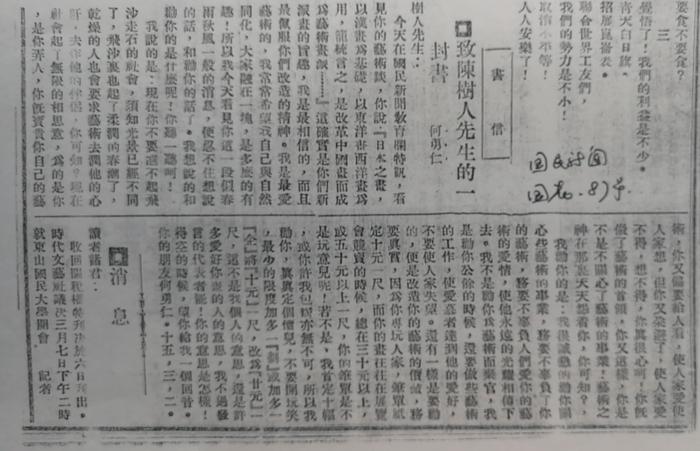 要食不要食?
三
覺悟了!我們的利益是不少。
青天白日旗。
招展崑崙表。
聯合世界工友們,
我們的勢力是不小!
取消不平等!
人人安樂了!
書信
■致陳樹人先生的一
封書
何勇仁
樹人先生:
今天在國民新聞教育欄特訊,看
見你的藝術談,你說『日本之畫,
以漢畫為基礎,以東洋畫西洋畫為
用,籠統言之,是改革中國畫而成
為藝術畫談……』這確實是你們新
派畫的旨趣,我是最相信的,而且
最佩服你們改造的精神。我是最愛
藝術的,我常常希望我自己與自然
同化,大家融在一塊,是多麼的有
趣!所以我今天看見你這一段似春
雨秋風一般的消息,便忍不住想說
的話,和勸你的話了。我想說的和
勸你的是什麼呢!你聽一聽呵!
我說的是:現在你不要還不起飛
沙走石的社會,須知光景已經不同
了,飛沙裏也起了柔潤的春潮了,
乾燥的人也會要求藝術去潤他的心
肝,去
社會起了無限的相思意,為的是你
,是你弄人,你既寶貴你自己的藝
術,你又偏要給人看,使人家愛使
人家想,但你又
不得,想不得,你真很心呵,你旣
做了藝術的首領,你又這樣,你是
不是不關心了藝術的事業!藝術之
神在那裏天天想看你,你可知?
我勸你的是:我很誠懇的勸你關
心些藝術的事業,務要不辜負了你
的藝術,務要不辜負人們愛你的藝
術的愛情,使他永遠的光耀相傳下
去。我不是勸你為藝術而棄官,我
是勸你公餘的時候,還要做些藝術
的工作,使愛慕者達到他的愛好,
不要使人家失望。還有一樣是要勸
的,便是改造你的藝術的價誠,務
要真實,因為你專玩人家,
定十元一尺,而你的畫往往在展覽
會競賣的時候,總在三十元以上,
或五十元以上一尺,你的
是玩意兒呢!若不是,我肯定十幅
,或你許我包
勸你,真真定個價兒,不要開玩笑
,最少的限度加多『劃』或加多一
『企』將『十元』一尺,改為『廿元』一
尺,這不是我個人的意思,還是許
多愛好你畫的人的意思,我不過發
言的代表者罷!你的意思是怎樣!
得空的時候,望你給我一個回音。
你的朋友何勇仁。十五,三,二。
■消息
讀者諸君:
收回關稅權特刊決於六日刊出。
時代文藝社議決三月七日下午二時
就東山國民大學開會
記者
国民新闻